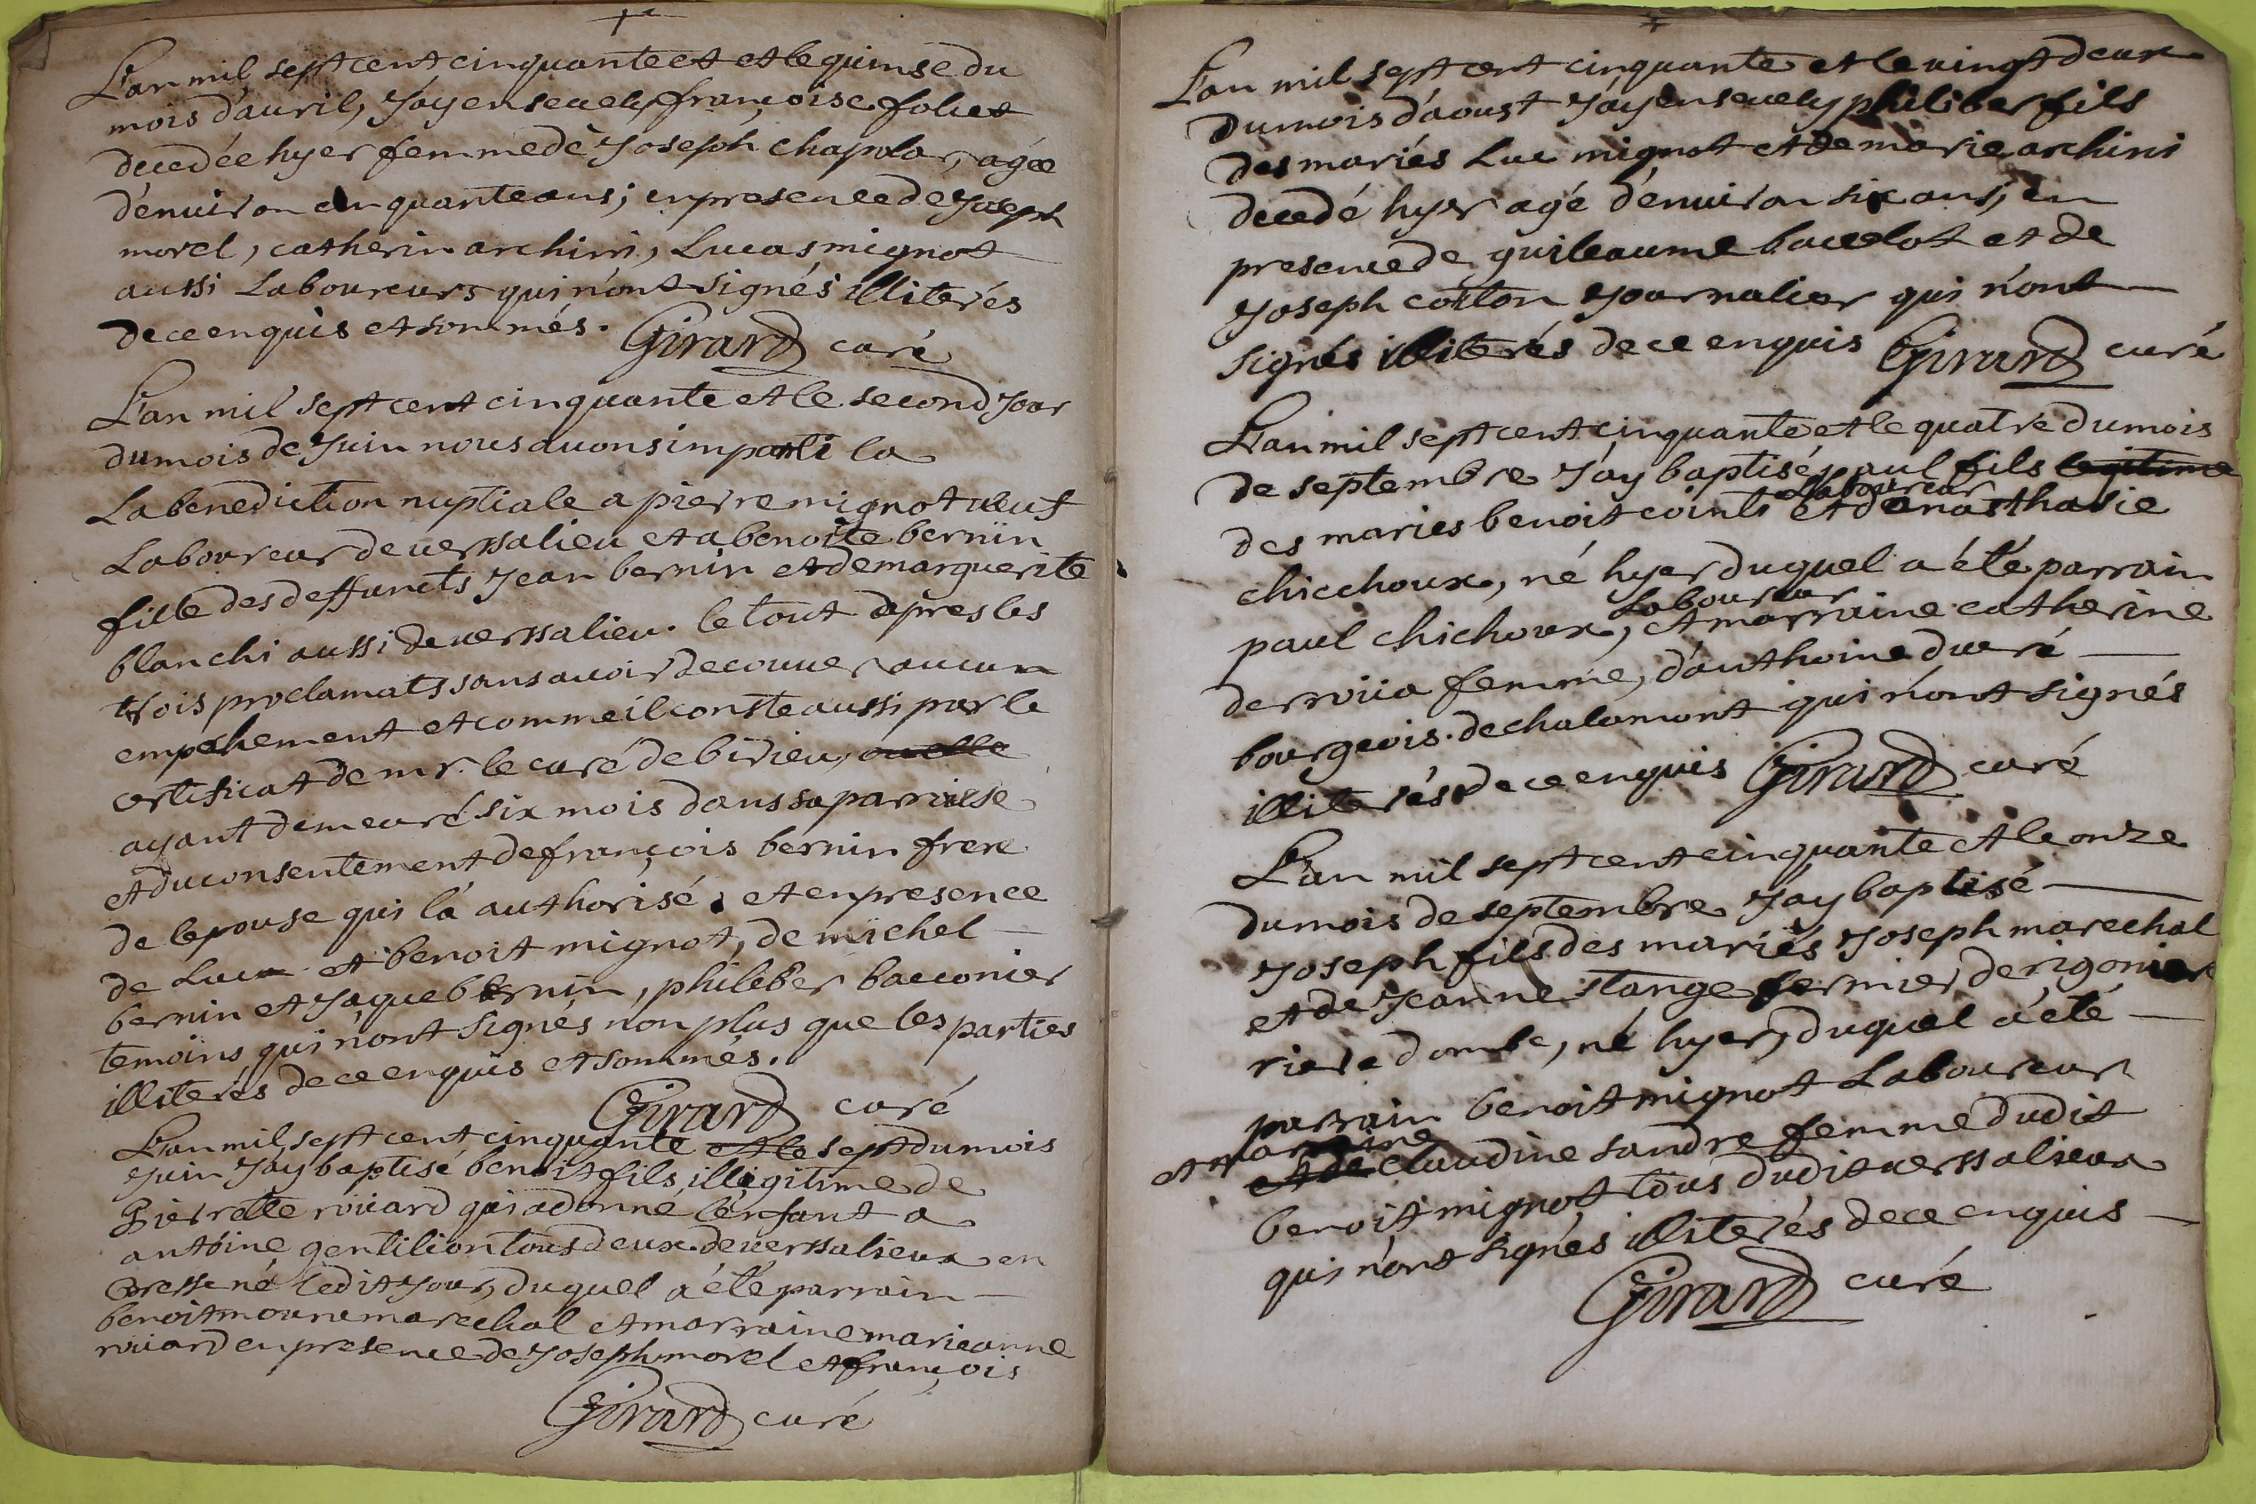 L'an mil sept cent cinquante et et le quinse du
mois d'avril, J'ay ensevely françoise foliet
decedée hyer femme de Joseph chapolar, agée
d'environ cinquante ans; en presence de Joseph
morel, catherin archini, Lucas mignot
aussi Laboureurs qui n'ont signés illiterés
de ce enquis et sommés. Girard curé
L'an mil sept cent cinquante et le second Jour
du mois de Juin nous avons imparti la
La benediction nuptiale a pierre mignot veuf
Laboureur de verssalieu et a benoite bernin
fille des deffuncts Jean bernin et de marguerite
blanchi aussi de verssalieu. le tout apres les
trois proclamats sans avoir decouver aucun
empechement et comme il conste aussi par le
certificat de mr. le curé de birieu, ou elle
ayant demeuré six mois dans sa parroisse
et du consentement de françois bernin frere
de lepouse qui l'a authorisé. et en presence
de Luc et benoit mignot, de michel
bernin et Jaque bernin, philiber bacconier
temoins qui n'ont signés non plus que les parties
illiterés de ce enquis et sommés.
Girard curé
L'an mil sept cent cinquante et le sept du mois
Juin J'ay baptisé benoit fils illegitime de
Pierrette roüard qui a donné l'enfant a
antoine gentilion tous deux de verssalieux en
Bresse né ledit Jour, duquel a été parrain
benoit mourne marechal et marraine marieanne
roüard en presence de Joseph morel et françois
Girard curé
L'an mil sept cent cinquante et le vingt deux
du mois d'aoust J'ay ensevely philiber fils
des mariés Luc mignot et de marie archini
decedé hyer agé d'environ six ans, en
presence de guileaume bacelot et de
Joseph cotton Journalier qui n'ont
signés illiterés de ce enquis Girard curé
L'an mil sept cent cinquante et le quatre du mois
de septembre J'ay baptisé paul fils legitime
Laboureur
des maries benoit cointi et d'anasthasie
chicchoux, né hyer duquel a été parrain
Laboureur
paul chichoux, et marraine catherine
derroiia femme, d'anthoine dueré
bourgeois. de chalamont qui n'ont signés
illiterés de ce enquis Girard curé
L'an mil sept cent cinquante et le onze
du mois de septembre J'ay baptisé
Joseph fils des mariés Joseph marechal
et de Jeanne stange fermier de rigonier
riere dombe, né hyer, duquel a été
parrain benoit mignot Laboureur
et marraine
et de claudine sandre femme dudit
benoit mignot tous dudit verssalieux
qui n'ont signés illiterés de ce enquis
Girard curé